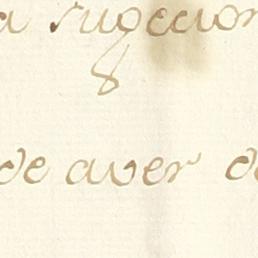 a sugecion
de aver de